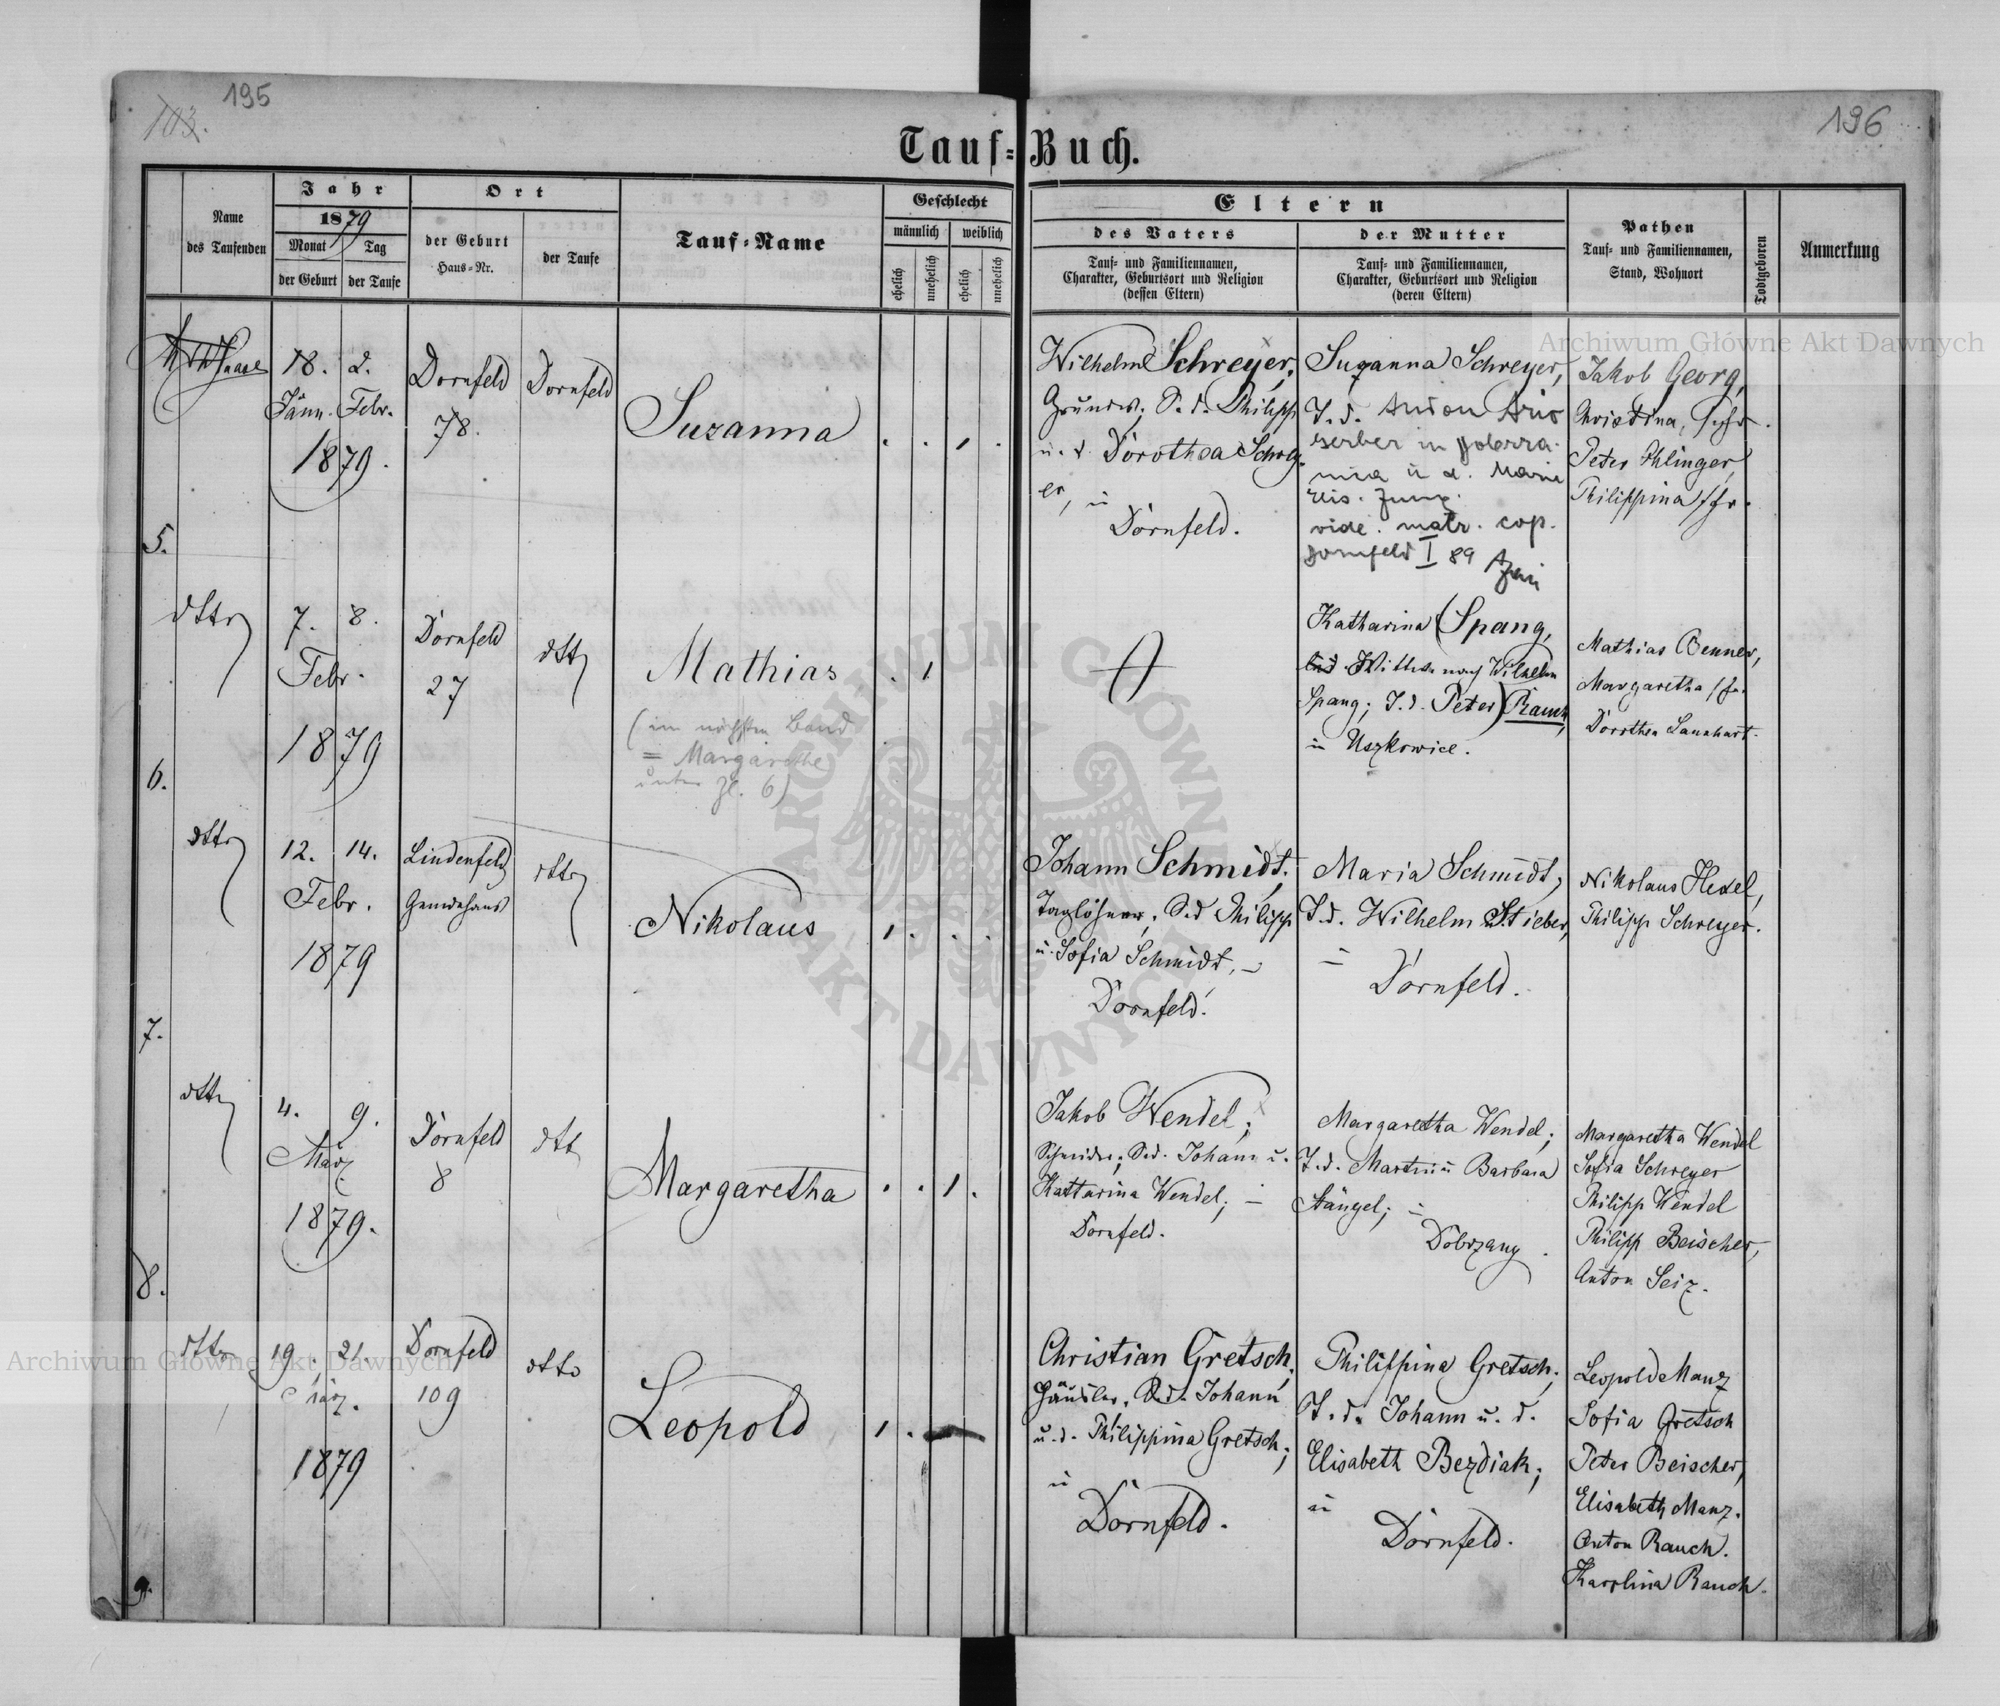 195
103.
196
Tauf-Buch.
Name
des Taufenden
Jahr
1879
Monat
der Geburt
Tag
der Taufe
Ort
der Geburt
Haus-Nr.
der Taufe
Tauf-Name
Geschlecht
männlich
weiblich
ehelich
unehelich
ehelich
unehelich
Eltern
des Vaters
Tauf- und Familiennamen,
Charakter, Geburtsort und Religion
(dessen Eltern)
der Mutter
Tauf- und Familiennamen,
Charakter, Geburtsort und Religion
(deren Eltern)
Pathen
Tauf- und Familiennamen,
Stand, Wohnort
Todtgeboren
Anmerkung
5.
18. 2.
Jänn. Febr.
1879.
Dornfeld
78.
Dornfeld
Suzanna
. . 1 .
Wilhelm Schreyer,
S. d. Philipp
u. d Dorothea Schrey-
er, in
Dornfeld.
Suzanna Schreyer,
T. d. Anton
in
u d. Maria
Elis. Jung.
vide. matr. cop.
Dornfeld I 89
Jakob Georg,
Christina,
Peter Ihlinger,
Philippina
6.
dtto
7. 8.
Febr.
1879
Dornfeld
27
dtto
Mathias
(im nächsten Band
= Margarethe
unter Zl. 6)
. 1
Katharina (Spang,
Wittwe nach Wilhelm
Spang; T. d. Peter) Rauch,
in Uszkowice.
Mathias Benner,
Margaretha
Dorothea
7.
dtto
12. 14.
Febr.
1879
Lindenfeld
dtto
Nikolaus
1 . . .
Johann Schmidt,
Taglöhner, S. d Philipp
u. Sofia Schmidt,
Dornfeld.
Maria Schmidt,
T. d. Wilhelm Stieber,
Dornfeld.
Nikolaus Hexel,
Philipp Schreyer.
8.
dtto
4. 9.
März
1879.
Dornfeld
8
dtto
Margaretha
. . 1 .
Jakob Wendel;
Schneider; S. d. Johann u.
Katharina Wendel;
Dornfeld.
Margaretha Wendel;
T. d. Martin u Barbara
Stängel;
Margaretha Wendel
Sofia Schreyer
Philipp Wendel
Philipp Beischer,
Anton Seiz.
9.
dtto
19. 21.
März.
1879
Dornfeld
109
dtto
Leopold
1 .
Christian Gretsch,
Häusler, S. d. Johann
u. d. Philippina Gretsch;
in
Dornfeld.
Philippina Gretsch,
T. d. Johann u. d.
Elisabeth Bezdiak;
in
Dornfeld.
Leopold Manz
Sofia Gretsch
Peter Beischer,
Elisabeth Manz.
Anton Rauch.
Karolina Rauch.
Archiwum Główne Akt Dawnych
Archiwum Główne Akt Dawnych
ARCHIWUM GŁÓWNE AKT DAWNYCH